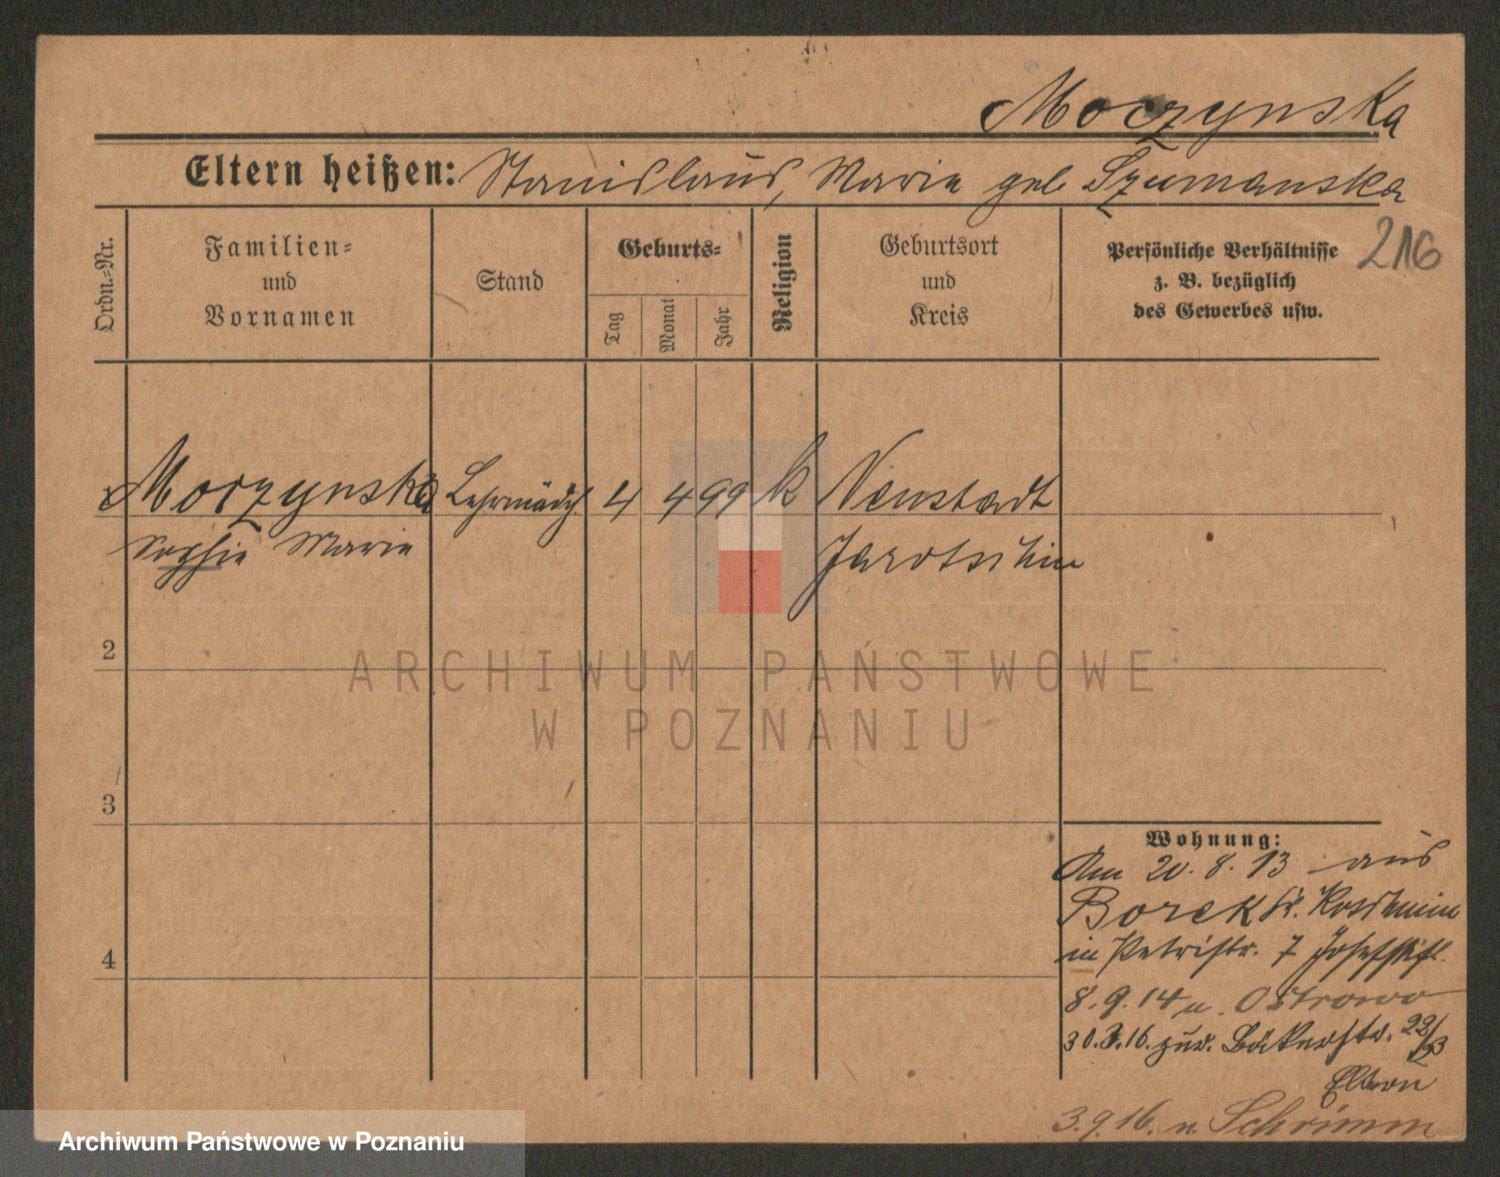 Moczynska
Eltern heißen: Stanislaus, Marie geb Szumanska
216
Ordn.-Nr.
Familien-
und
Vornamen
Stand
Geburts-
Tag
Monat
Jahr
Religion
Geburtsort
und
Kreis
Persönliche Verhältnisse
z. B. bezüglich
des Gewerbes usw.
Moczynska Lehrmädch 4 4 99 k Neustadt
Sophie Marie Jarotschin
2
3
4
Wohnung:
Am 20. 8. 13 aus
Borek Kr. Koschmin
in Petristr. 7 Josefstift.
8. 9. 14 n. Ostrowo
30. 3. 16. zur. Bäkerstr. 22/23
Eltern
3. 9. 16. n. Schrimm
ARCHIWUM PAŃSTWOWE
W POZNANIU
Archiwum Państwowe w Poznaniu